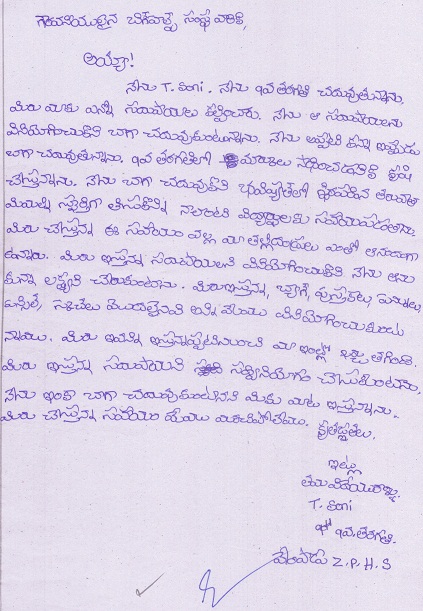 గౌరవనీయులైన బిగ్‌హెల్ప్ సంస్థ వారికి,
అయ్యా!
నేను T. Soni. నేను 9వ తరగతి చదువుతున్నాను.
మీరు మాకు ఎన్నో సదుపాయాలు కల్పించారు. నేను ఆ సదుపాయాలను
వినియోగించుకొని బాగా చదువుకుంటున్నాను. నేను అప్పటి కన్నా ఇప్పుడు
బాగా చదువుతున్నాను. 9వ తరగతిలో మార్కులు సాధించడానికి కృషి
చేస్తున్నాను. నేను బాగా చదువుకొని భవిష్యత్తులో స్థిరపడిన తరువాత
మిమ్మల్ని స్ఫూర్తిగా తీసుకొని నాలాంటి విద్యార్థులకు సహాయపడతాను.
మీరు చేస్తున్న ఈ సహాయం వల్ల మా తల్లిదండ్రులు ఎంతో ఆనందంగా
ఉన్నారు. మీరు ఇస్తున్న సదుపాయాలని వినియోగించుకొని నేను అను
కున్న లక్ష్యాన్ని చేరుకుంటాను. మీరు ఇస్తున్న, బ్యాగ్, పుస్తకాలు, పెన్నులు,
పెన్సిల్, స్కేచీలు మొదలైనవి అన్ని మేము వినియోగించుకుంటు
న్నాము. మీరు ఇవన్ని ఇస్తున్నప్పటినుంచి మా ఇంట్లో ఖర్చు తగ్గింది.
మీరు ఇస్తున్న సదుపాయాని సద్వినియోగం చేసుకుంటాను.
నేను ఇంకా బాగా చదువుకుంటానని మీకు మాట ఇస్తున్నాను.
మీరు చేస్తున్న సహాయం మేము మరిచిపోలేము. కృతజ్ఞతలు.
ఇట్లు
తమ విధేయురాలు
T. Soni
9వ.తరగతి.
వేంపాడు Z.P.H.S